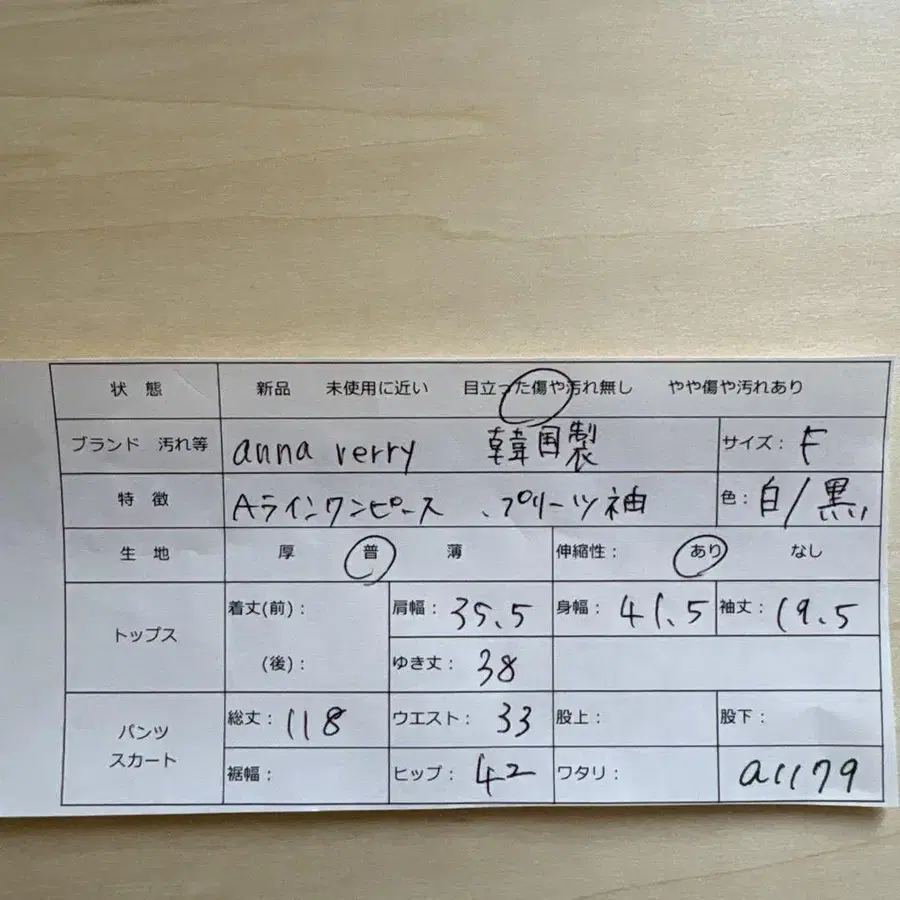 状 態 新品 未使用に近い 目立った傷や汚れ無し やや傷や汚れあり
ブランド 汚れ等 anna rerry 韓国製 サイズ: F
特 徴 Aラインワンピース 、プリーツ袖 色: 白/黒
生 地 厚 普 薄 伸縮性: あり なし
トップス 着丈(前): 肩幅: 35.5 身幅: 41.5 袖丈: 19.5
(後): ゆき丈: 38
パンツ スカート 総丈: 118 ウエスト: 33 股上: 股下:
裾幅: ヒップ: 42 ワタリ: a1179